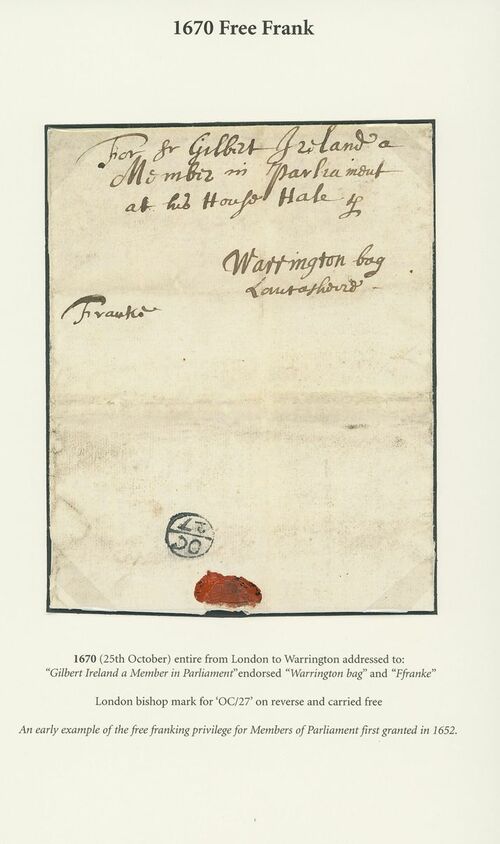 1670 Free Frank
For Sr Gilbert Ireland a
Member in Parliament
at his House Hale
Warrington bag
Lancashire
Franke
OC
27
1670 (25th October) entire from London to Warrington addressed to:
“Gilbert Ireland a Member in Parliament”endorsed “Warrington bag” and “Ffranke”
London bishop mark for ‘OC/27’ on reverse and carried free
An early example of the free franking privilege for Members of Parliament first granted in 1652.